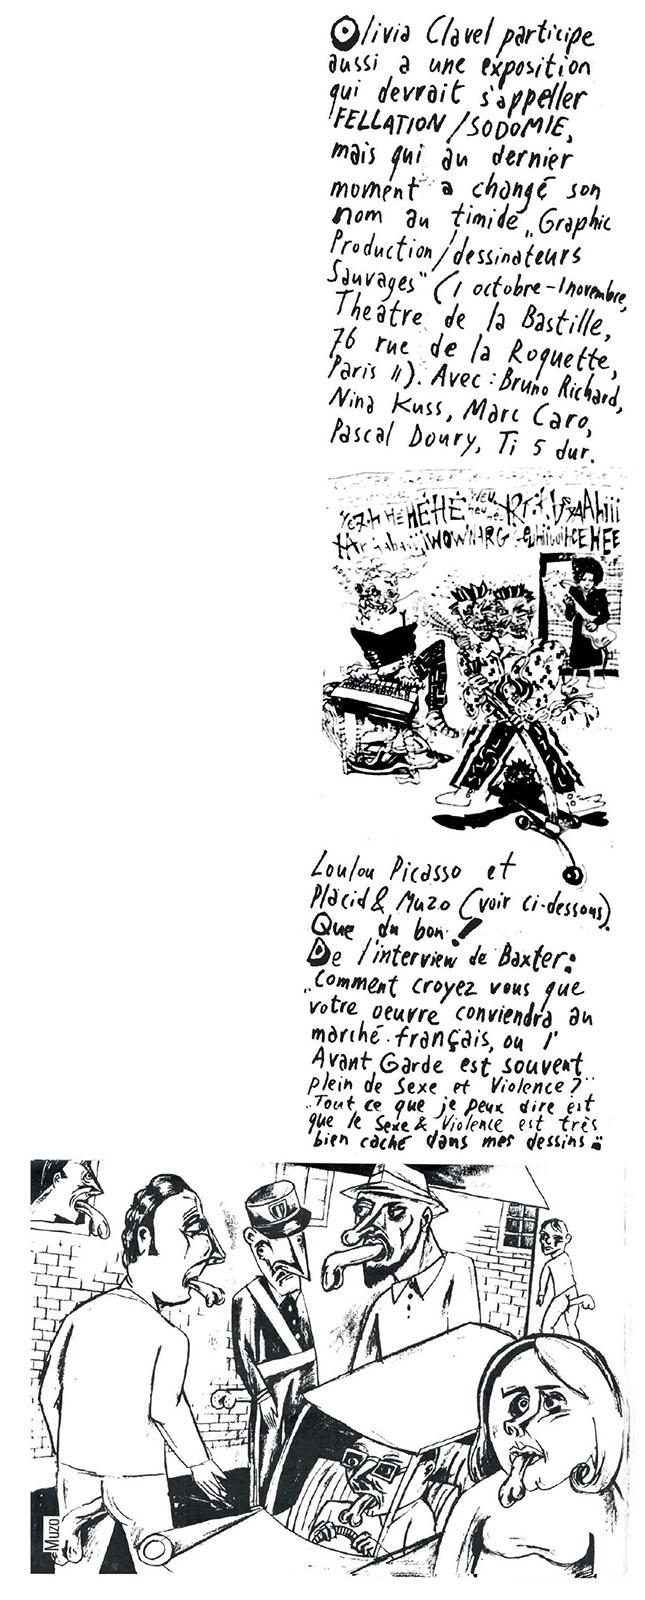 Olivia Clavel participe
aussi a une exposition
qui devrait s'appeller
FELLATION/SODOMIE,
mais qui au dernier
moment a changé son
nom au timide „Graphic
Production/dessinateurs
Sauvages" (1 octobre-1 novembre,
Theatre de la Bastille,
76 rue de la Roquette,
Paris 11). Avec: Bruno Richard,
Nina Kuss, Marc Caro,
Pascal Doury, Ti 5 dur.
HEHÉHÉ
WOW
HEE
Loulou Picasso et
Placid & Muzo (voir ci-dessous).
Que du bon!
De l'interview de Baxter:
„Comment croyez vous que
votre oeuvre conviendra au
marché français, ou l'
Avant Garde est souvent
plein de Sexe et Violence?"
„Tout ce que je peux dire est
que le Sexe & Violence est très
bien caché dans mes dessins."
Muzo